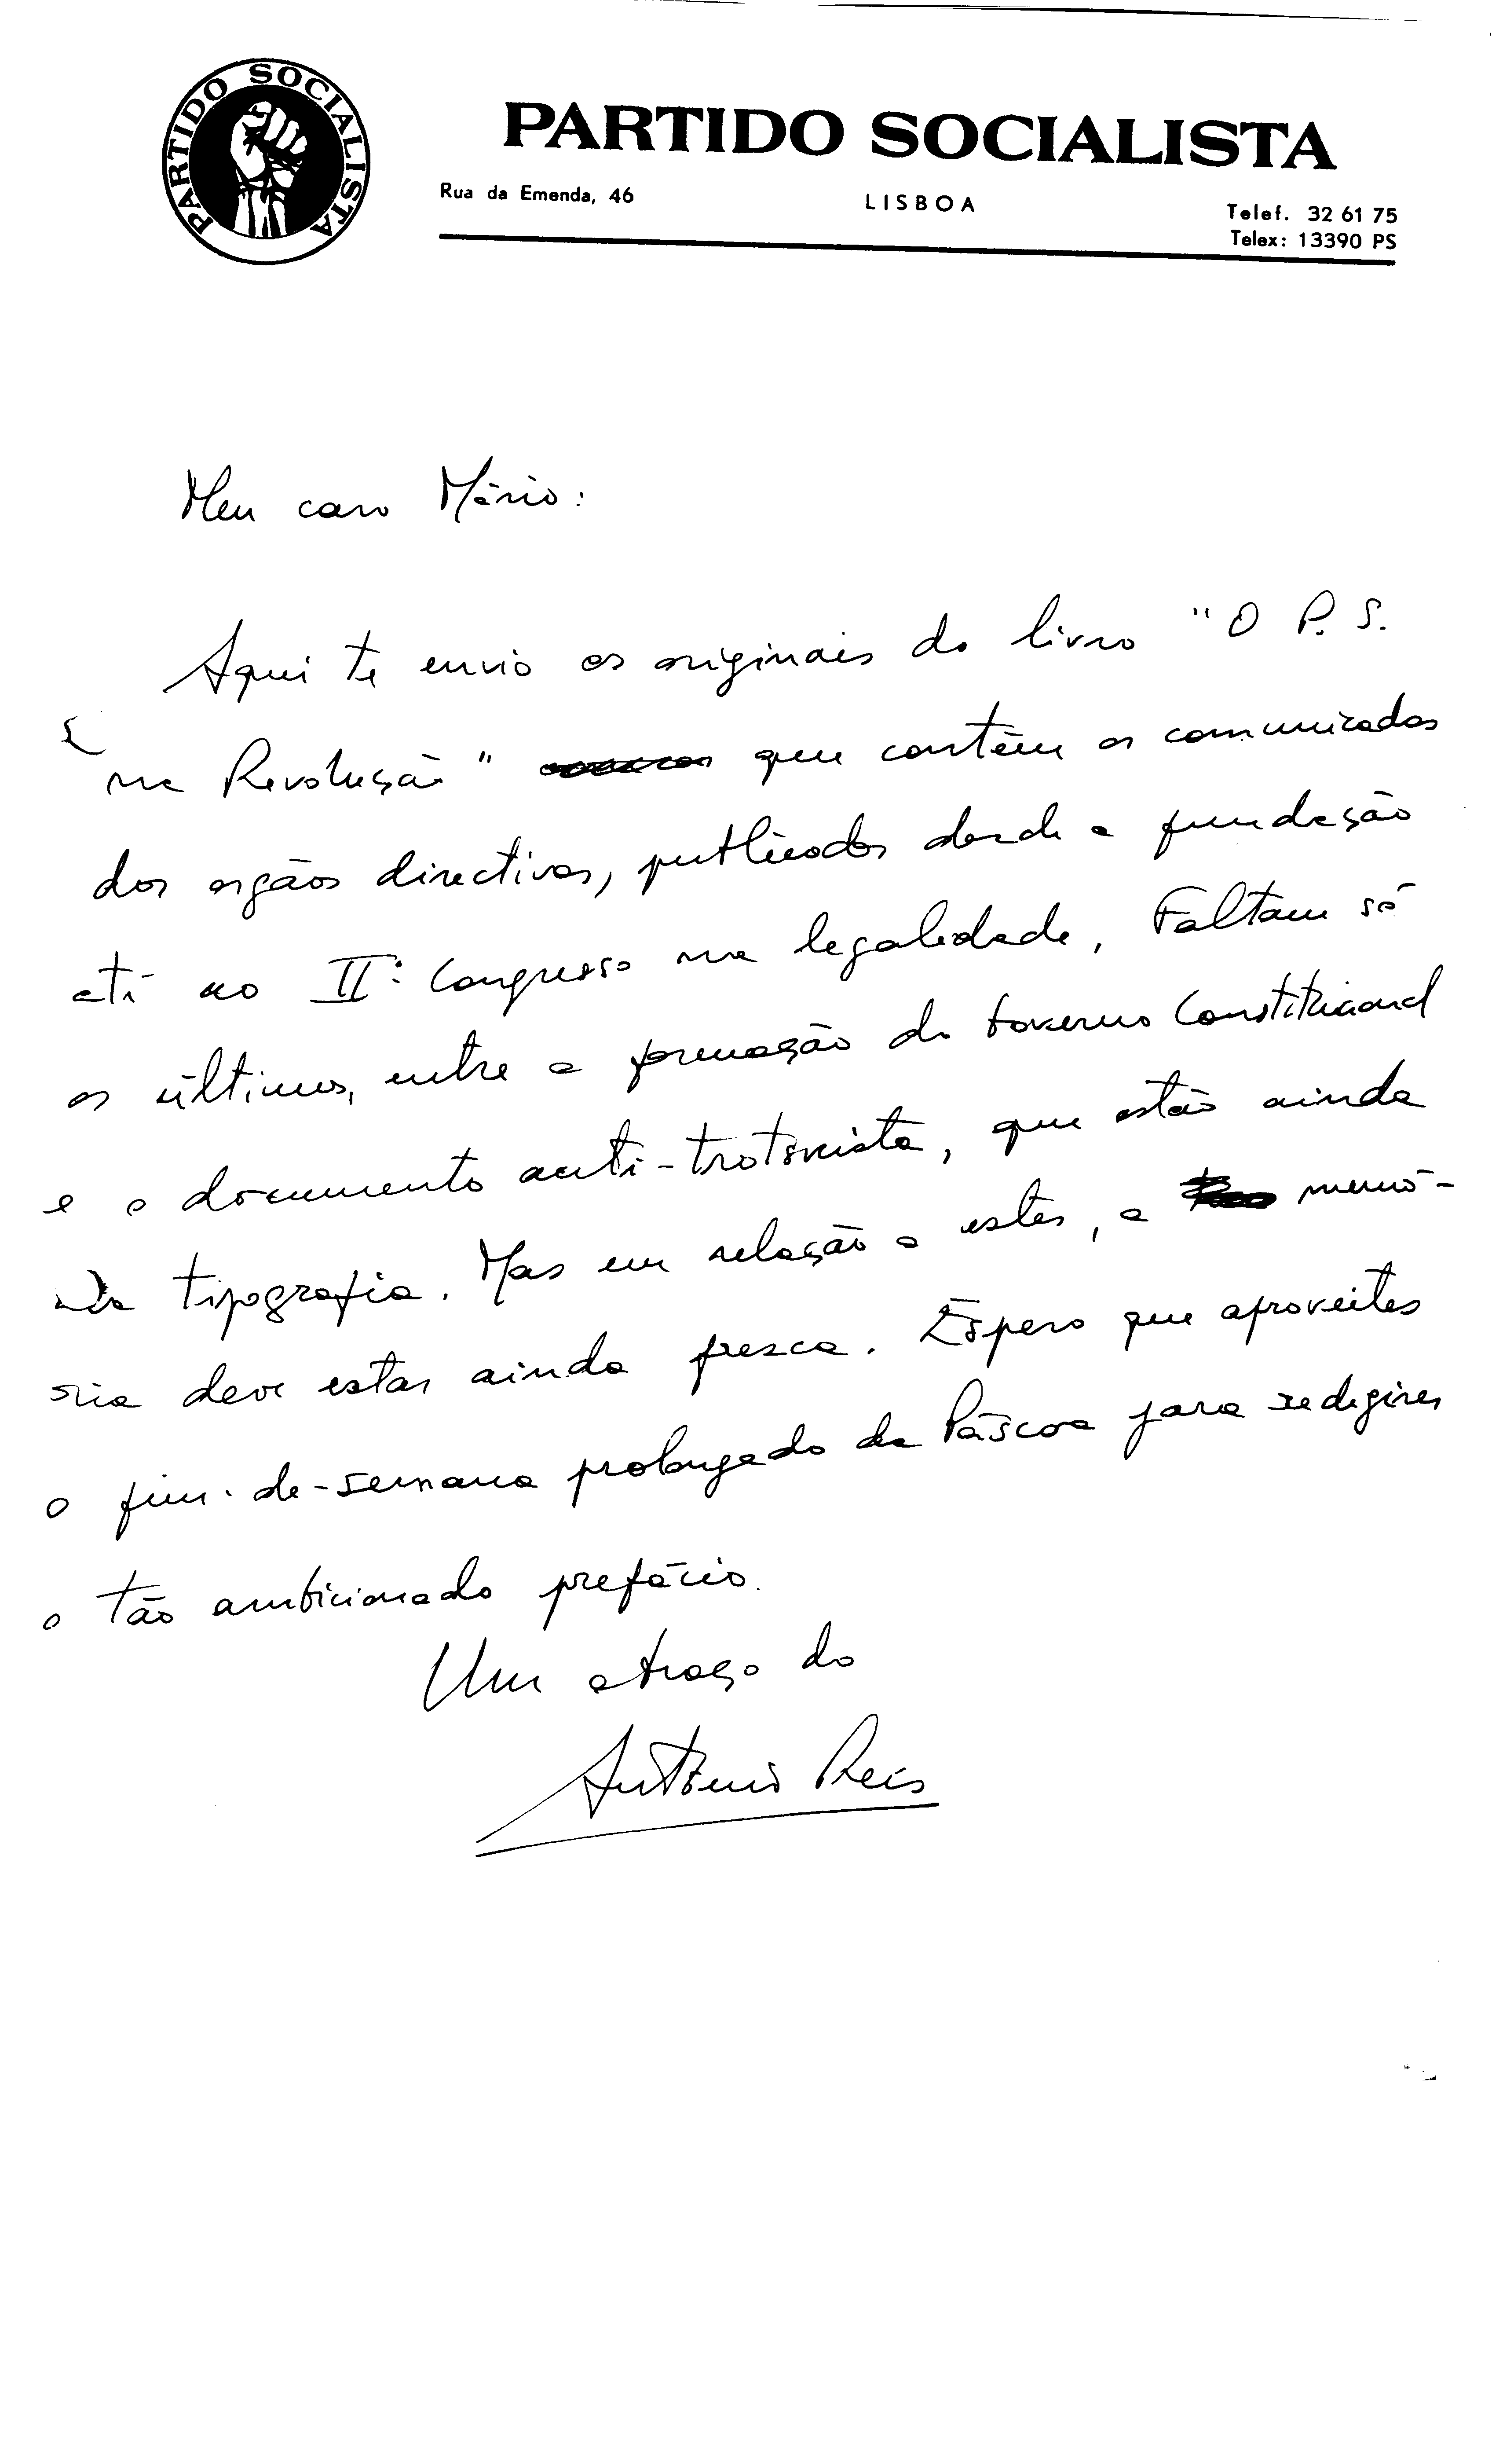 PARTIDO SOCIALISTA
PARTIDO SOCIALISTA
Rua da Emenda, 46
LISBOA
Telef. 32 61 75
Telex: 13390 PS
Meu caro Mário:
Aqui te envio os originais do livro "O P. S.
na Revolução" que contêm os comunicados
dos orgãos directivos, publicados desde a fundação
até ao II.º Congresso na legalidade. Faltam só
os últimos, entre a formação do Governo Constitucional
e o documento anti-trotskista, que estão ainda
na tipografia. Mas em relação a estes, a memó-
ria deve estar ainda fresca. Espero que aproveites
o fim-de-semana prolongado da Páscoa para redigires
o tão ambicionado prefácio.
Um abraço do
António Reis